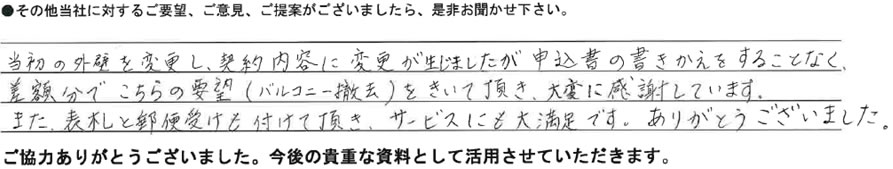 ●その他当社に対するご要望、ご意見、ご提案がございましたら、是非お聞かせ下さい。
当初の外壁を変更し、契約内容に変更が生じましたが申込書の書きかえをすることなく、
差額分でこちらの要望(バルコニー撤去)をきいて頂き、大変に感謝しています。
また、表札と郵便受けも付けて頂き、サービスにも大満足です。ありがとうございました。
ご協力ありがとうございました。今後の貴重な資料として活用させていただきます。